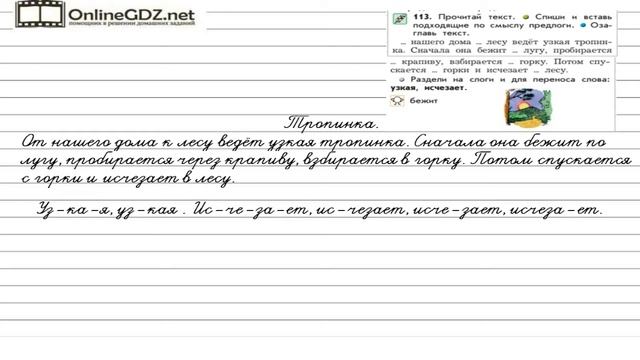 OnlineGDZ.net
помощник в решении домашних заданий
113. Прочитай текст. Спиши и вставь
подходящие по смыслу предлоги. Оза-
главь текст.
... нашего дома ... лесу ведёт узкая тропин-
ка. Сначала она бежит ... лугу, пробирается
... крапиву, взбирается ... горку. Потом спу-
скается ... горки и исчезает ... лесу.
Раздели на слоги и для переноса слова:
узкая, исчезает.
бежит
Тропинка.
От нашего дома к лесу ведёт узкая тропинка. Сначала она бежит по
лугу, пробирается через крапиву, взбирается в горку. Потом спускается
с горки и исчезает в лесу.
Уз-ка-я, уз-кая. Ис-че-за-ет, ис-чезает, исче-зает, исчеза-ет.